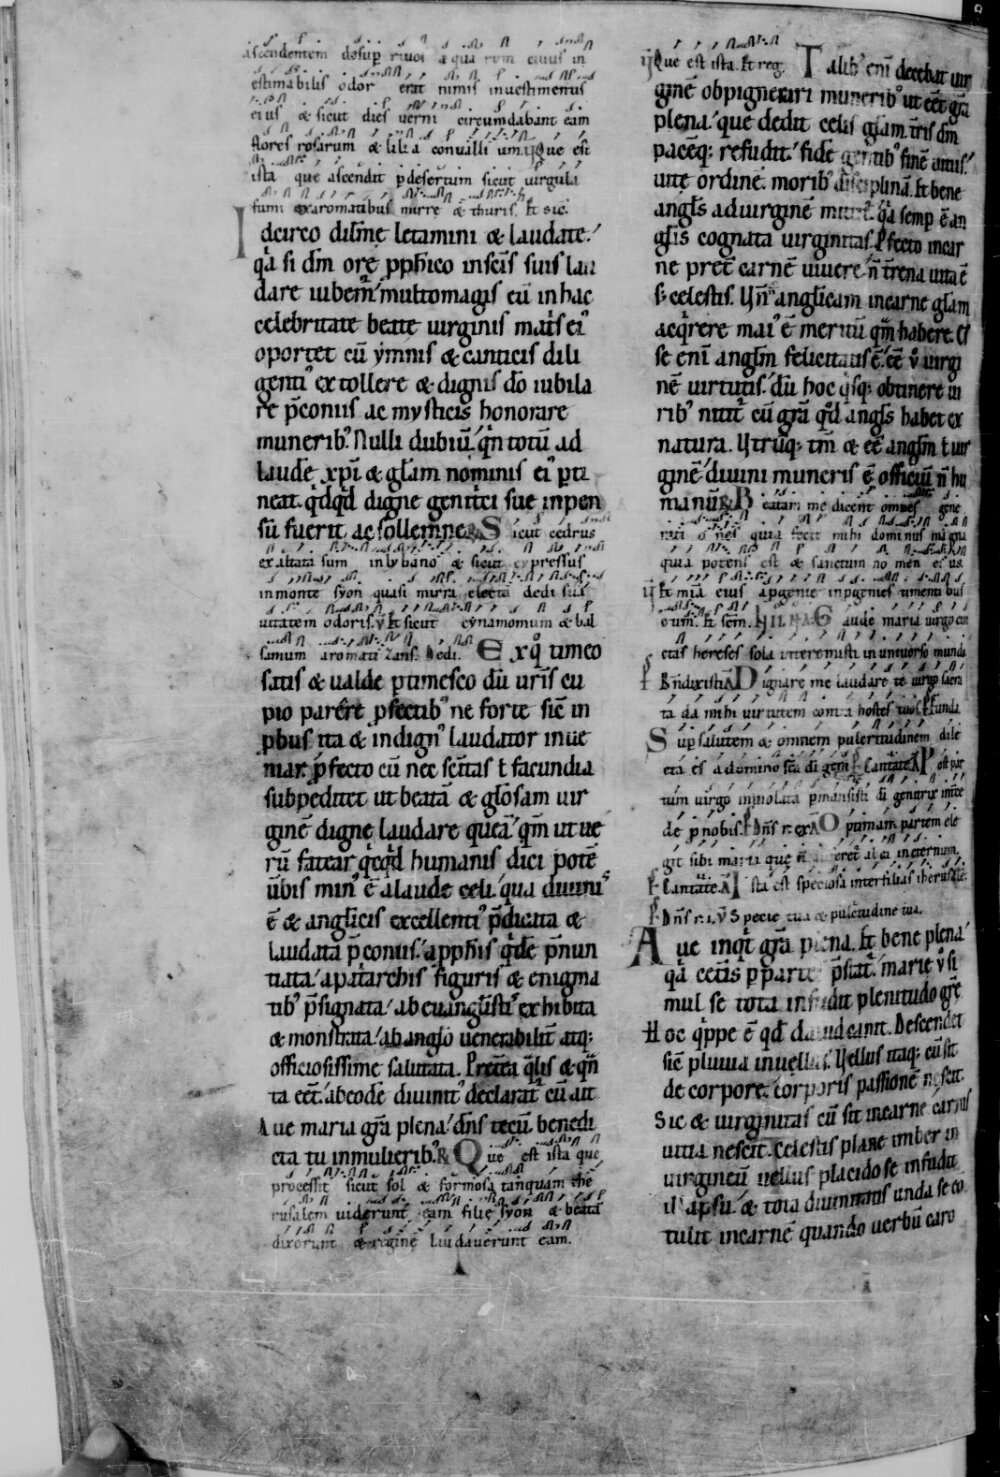 ascendentem desuꝑ riuoſ aqua rum cuius in
estimabilis odor erat nimis inuestimentis
eius & sicut dies uerni circumdabant eam
flores rosarum & lilia conualli um. ℣Que est
ista que ascendit ꝑdesertum sicut uirgula
fumi exaromatibus mirrę & thuris. Et sic.
Idcirco dilm̄e letamini & laudate.
q̄a si dm̄ orę ꝓph̄ico insc̄is suis lau
dare iubem᷒ multomagis eū inhac
celebritate beatę uirginis mat̄is ei᷒
oportet eū ẏmnis & canticis dili
genti᷒ extollere & dignis dō iubila
re p̄coniis ac mysticis honorare
munerib᷒. Nulli dubiū q̄n totū ad
laudē xp̄i & gl̄am nominis ei᷒ ꝑti
neat. q̄dq̄d digne genit̄ci sue inpen
sū fuerit ac sollemne. ℟ Sicut cedrus
exaltata sum inlybano & sicut cypressus
inmonte syon quasi mirra electa dedi sua
uitatem odoris. ℣ Et sicut cynamomum & bal
samum aromati zans. Dedi. Exq̊ timeo
satis & ualde ꝑtimesco dū ur̄is cu
pio parēre ꝓfectib᷒ ne forte sic̄ in
ꝓbus ita & indign᷒ laudator inue
niar. ꝓfecto cū nec sc̄itas ł facundia
subpeditet ut beatā & glō̄sam uir
ginē digne laudare queā. qm̄ ut ue
rū fatear q̄cq̄d humanis dici potē
ūbis min᷒ ē alaude celi. qua diuini᷒
ē & angl̄icis excellenti᷒ p̄dicata &
laudata p̄coniis. aꝓph̄is q̄dē p̄nun
tiata. apat̄archis figuris & enigma
tib᷒ p̄signata. ab euangl̄ist᷒ exhibita
& monstrata. ab angl̄o uenerabilit̄ atq;
officiosissime salutata. Pret̄ea q̄lis & q̄n
ta eēt. abeodē diuinit᷒ declarat̄ cū ait
Aue maria gr̄a plena. dn̄s tecū benedi
cta tu inmulierib᷒. ℟ Que est ista que
processit sicut sol & formosa tanquam ihe
rusalem uiderunt eam filię syon & beatā
dixerunt & reginę laudauerunt eam.
℣Que est ista. Et reg. Talib᷒ eni᷒ decebat uir
ginē obpignerari munerib᷒ ut eēt gr̄a
plena. que dedit celis gl̄am t̄ris dm̄
pacēq; refudit. fidē gentib᷒ finē uitiis.
uitę ordinē. morib᷒ disciplinā. Et bene
angl̄s aduirginē mittit̄. q̄a semꝑ ē an
gl̄is cognata uirginitas. Ꝓfecto incar
ne pret̄ carnē uiuere. n̄ t̄rena uita ē
s; celestis. Un̄ anglicam incarne gl̄am
acq̄rere mai᷒ ē meritū qm̄ habere. Es
se enī anglm̄ felicitatis ē. eē ū uirgi
nē uirtutis. dū hoc q̄sq; obtinere ui
rib᷒ nitit̄ cū gr̄a q̊d angl̄s habet ex
natura. Utrūq; tm̄ & eē anglm̄ ł uir
ginē. diuini muneris ē officiū n̄ hu
manū. ℟ Beatam me dicent omnes gene
rati ones quia fecit mihi dominus magna
quia potens est & sanctum no men ei us.
℣ Et mīa eius aꝓgenie inꝓgenies timenti bus
eum. Et sc̄m. Gaude maria uirgo cun
ctas hereses sola interemisti in uniuerso mundo
Bn̄dixisti. A Dignare me laudare te uirgo sacra
ta da mihi uirtutem contra hostes tuos. Funda.
Suꝑ salutem & omnem pulcritudinem dile
cta es a domino sc̄a di gen̄. Cantatē. A Post par
tum uirgo inuiolata ꝑmansisti di genitrix inter
de ꝓnobis. Dn̄s r. ex. A Optimam partem ele
git sibi maria que n̄ auferet̄ ab ea ineternum.
Cantatē. A Ista est speciosa interfilias iherusalē.
Dn̄s r. i. ℣ Specie tua & pulcritudine tua.
Aue inq̄t gr̄a plena. Et bene plena.
q̄a cet̄is ꝑ parte p̄stat̄. marię ū si
mul se tota infudit plenitudo gr̄ę
Hoc q̄ppe ē qd̄ dauid canit. Descendet
sic̄ pluuia inuellus. Uellus itaq; cū sit
de corpore. corporis passionē nescit.
Sic & uirginitas cū sit incarne carnis
uitia nescit. Celestis plane imber in
uirgineū uellus placido se infudit
illapsu. & tota diuinitatis unda se co
tulit incarnē quando uerbū caro